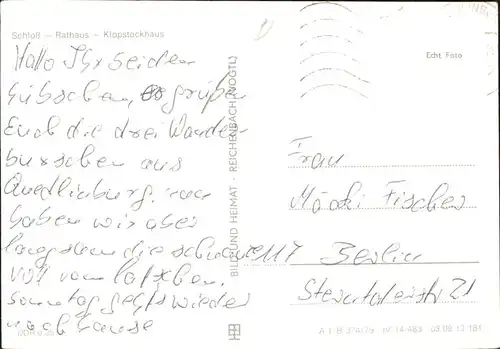 Schloß – Rathaus – Klopstockhaus
Hallo Ihr beiden
Hübschen, es grüßen
Euch die drei Wander-
burschen aus
Quedlinburg. nun
haben wir aber
langsam die schnauze
voll vom latschen.
Sonntag gehts wieder
nach hause
BILD UND HEIMAT · REICHENBACH (VOGTL)
Echt Foto
Frau
Fischer
1117 Berlin
21
A 1/B 374/75 IV-14-483 03 08 12 181